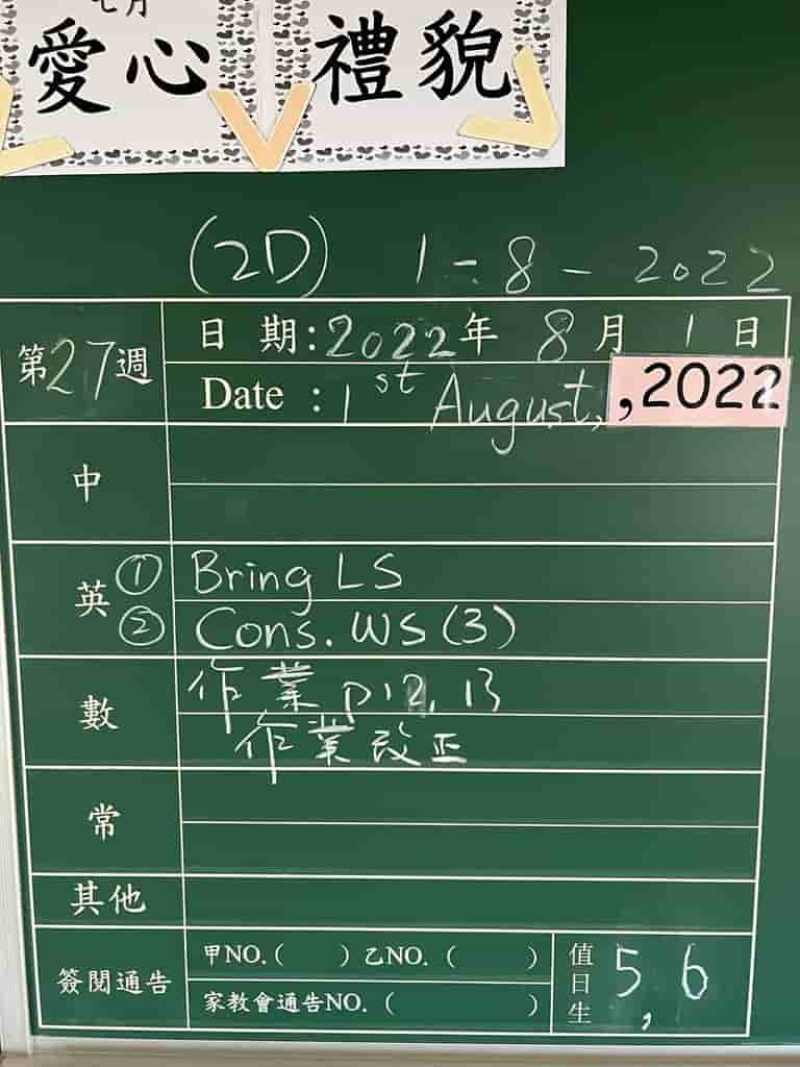 七月
愛心 禮貌
(2D) 1-8-2022
第27週
日期:2022年8月1日
Date : 1st August, ,2022
中
英
① Bring LS
② Cons. WS (3)
數
作業 p12, 13
作業改正
常
其他
簽閱通告
甲NO.( ) 乙NO.( )
家教會通告NO.( )
值日生
5, 6